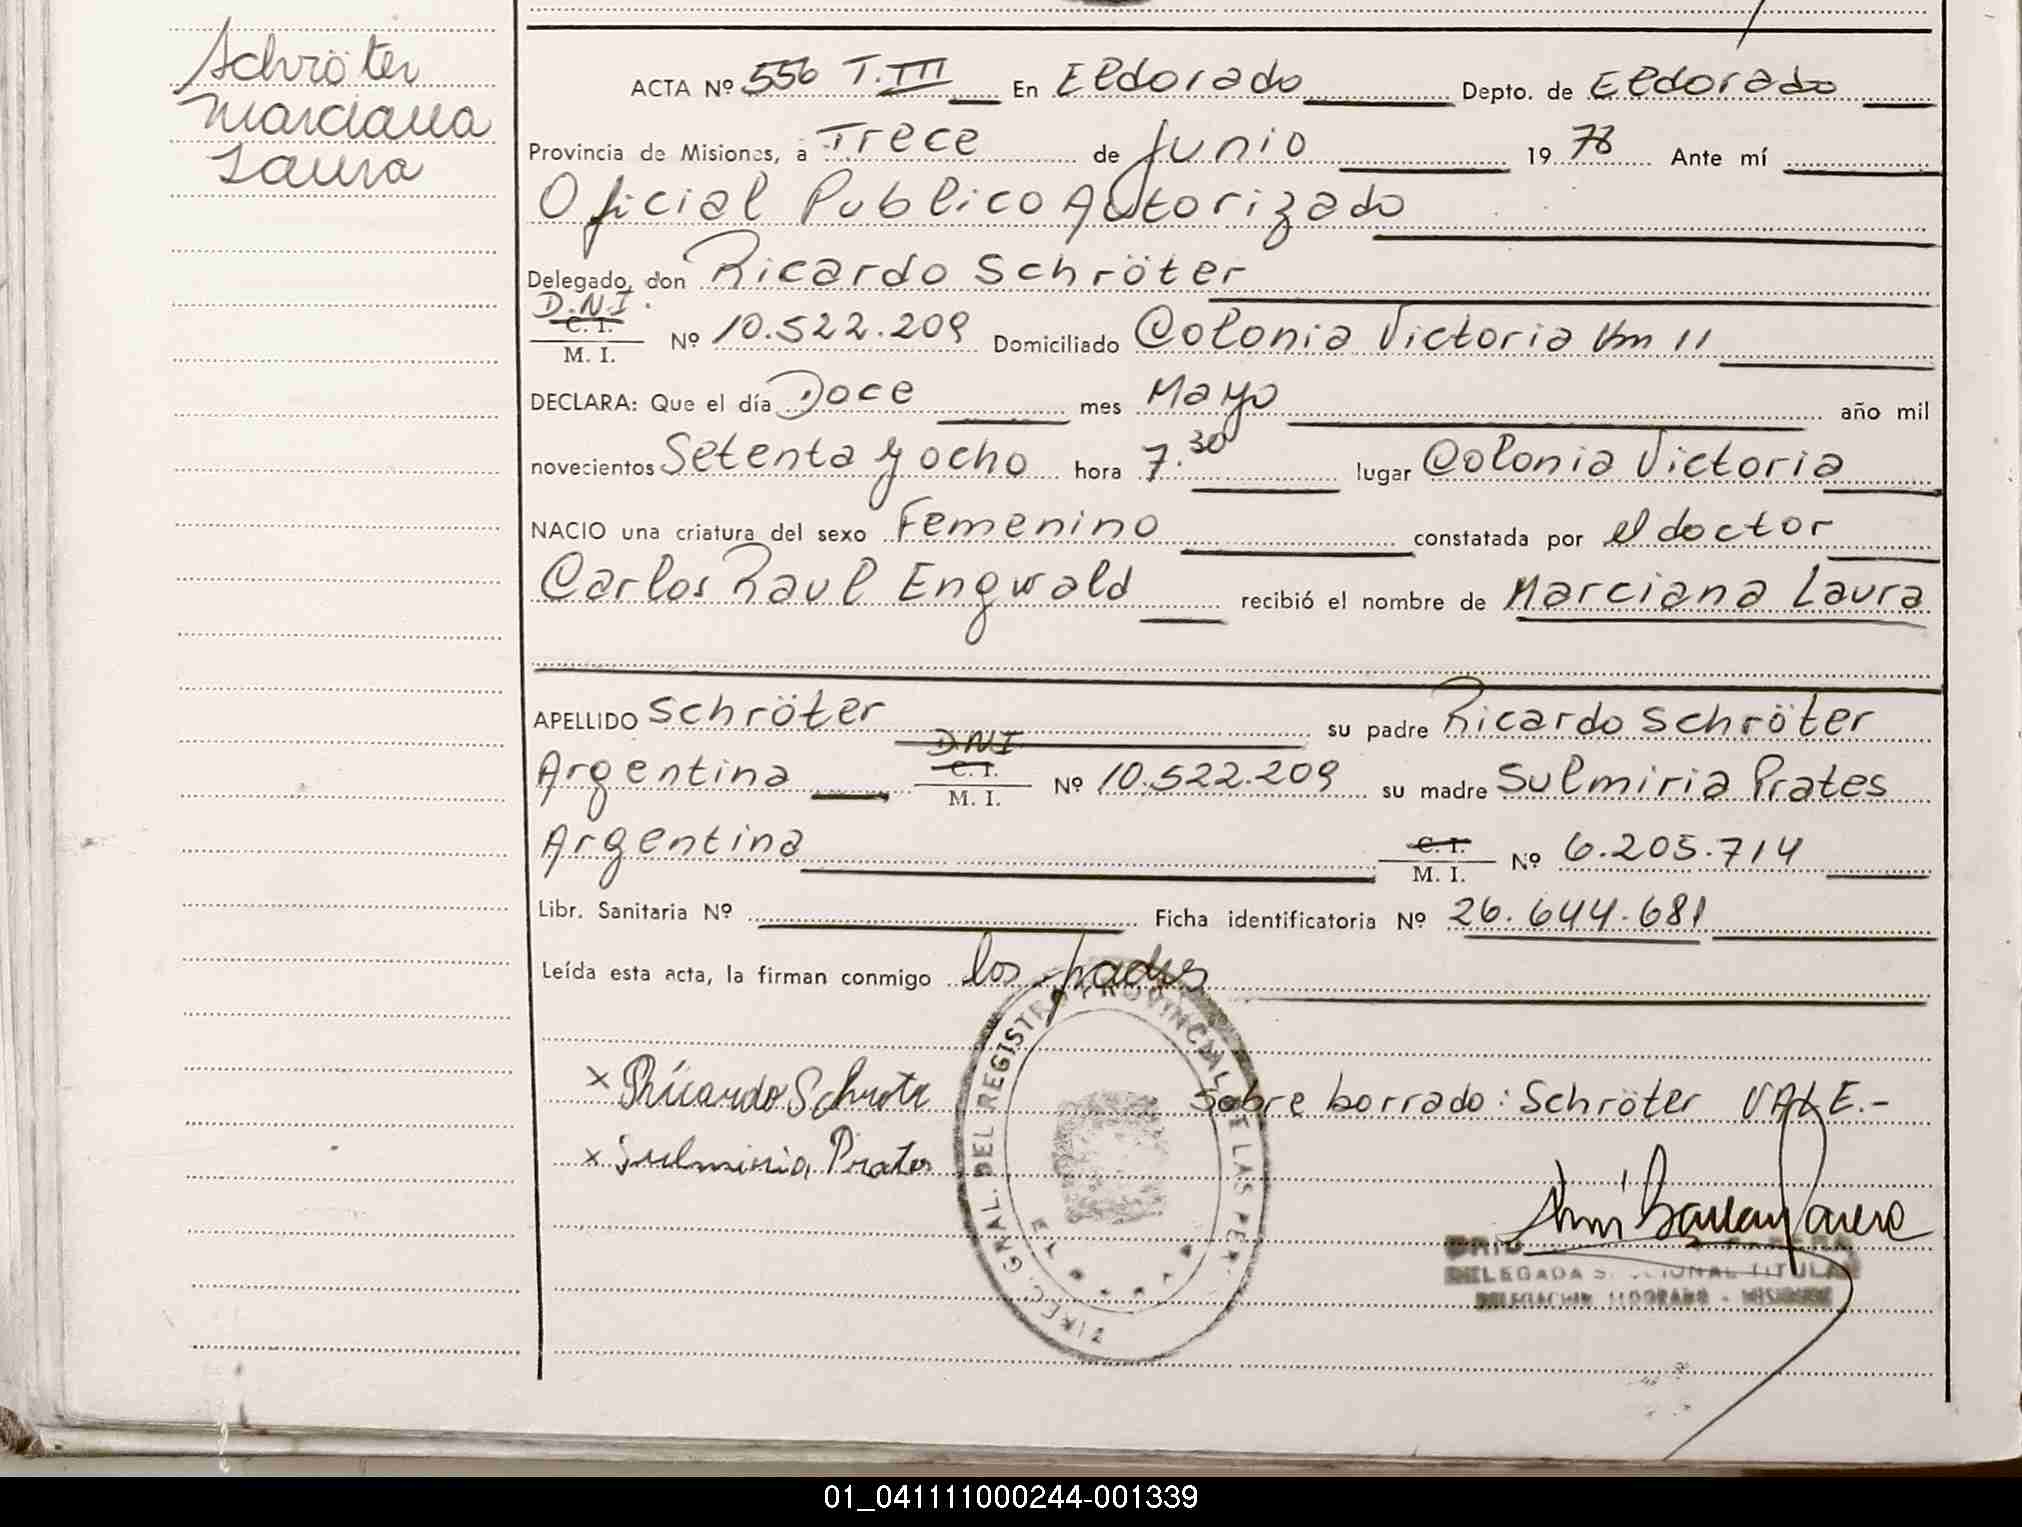 Schröter
Marciana
Laura
ACTA Nº 556 T.III En Eldorado Depto. de Eldorado
Provincia de Misiones, a Trece de Junio 1978 Ante mí
Oficial Publico Autorizado
Delegado, don Ricardo Schröter
D.N.I.
C. I.
M. I. Nº 10.522.209 Domiciliado Colonia Victoria Km 11
DECLARA: Que el día Doce mes Mayo año mil
novecientos Setenta y ocho hora 7.30 lugar Colonia Victoria
NACIO una criatura del sexo Femenino constatada por el doctor
Carlos Raul Engwald recibió el nombre de Marciana Laura
APELLIDO Schröter su padre Ricardo Schröter
D.N.I.
Argentina C. I. M. I. Nº 10.522.209 su madre Sulmiria Prates
Argentina C. I. M. I. Nº 6.205.714
Libr. Sanitaria Nº Ficha identificatoria Nº 26.644.681
Leída esta acta, la firman conmigo los padres
x Ricardo Schrote
Sobre borrado: Schröter VALE.-
x Sulmiria Prates
DIREC. GRAL. DEL REGISTRO PROVINCIAL LAS PER
DELEGADA TITULAR
DELEGACION ELDORADO - MISIONES
01_041111000244-001339